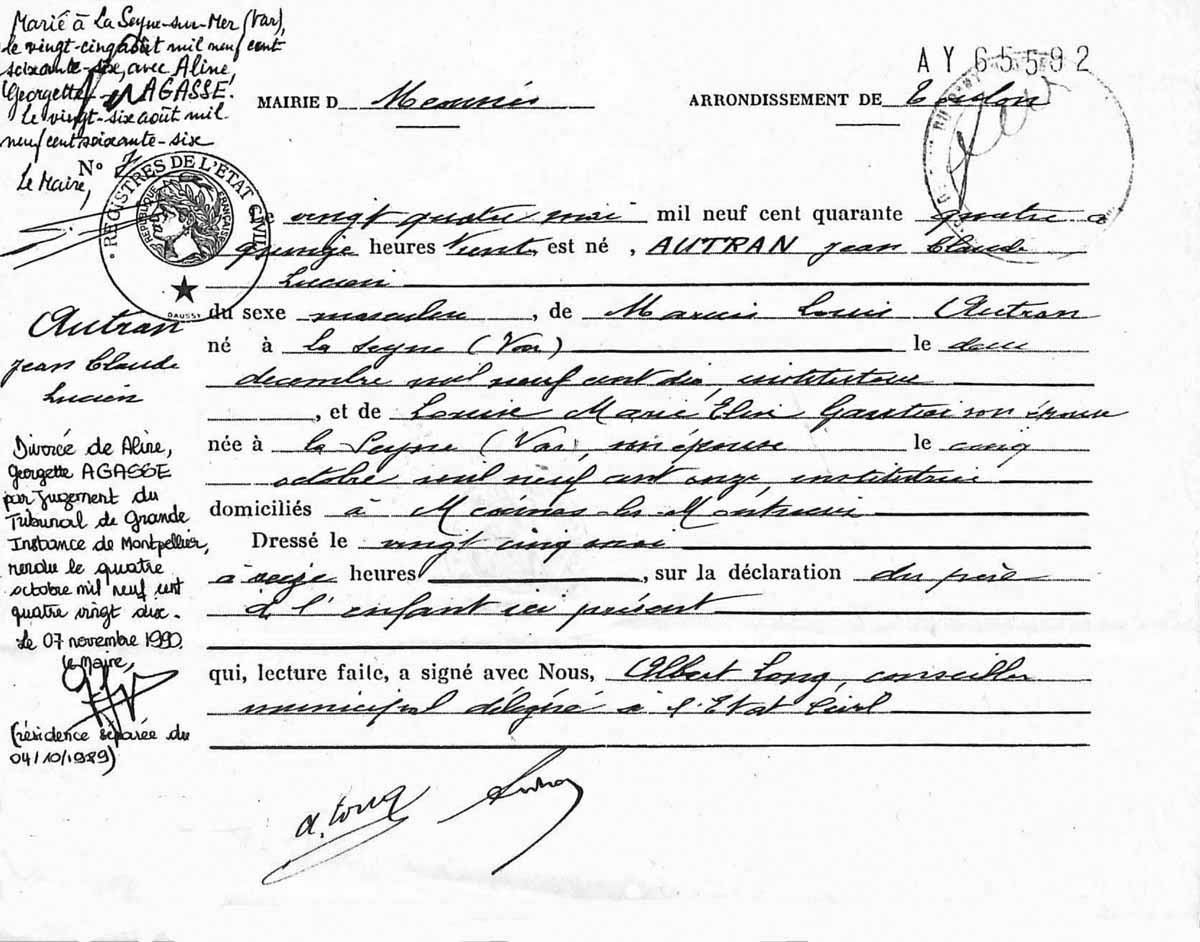 Marié à La Seyne-sur-Mer (Var),
le vingt-cinq août mil neuf cent
soixante-six, avec Aline,
Georgette AGASSE.
Le vingt-six août mil
neuf cent soixante-six
Le Maire,
AY 65592
MAIRIE D Meounes
ARRONDISSEMENT DE Toulon
N° 7
REGISTRES DE L'ETAT CIVIL
REPUBLIQUE FRANÇAISE
DAUSSY
vingt quatre mai mil neuf cent quarante quatre à
quinze heures Vingt est né, AUTRAN Jean Claude
Lucien
du sexe masculin, de Marius Louis Autran
né à La Seyne (Var) le deux
decembre mil neuf cent dix, instituteur
, et de Louise Marie Elise Gautier son épouse
née à la Seyne (Var), son épouse le cinq
octobre mil neuf cent onze institutrice
domiciliés à Meounes les Montrieux
Dressé le vingt cinq mai
à seize heures, sur la déclaration du père
de l'enfant ici présent
qui, lecture faite, a signé avec Nous, Albert Long, conseiller
municipal délégué à l'Etat Civil
Autran
Jean Claude
Lucien
Divorcé de Aline,
Georgette AGASSE
par jugement du
Tribunal de Grande
Instance de Montpellier,
rendu le quatre
octobre mil neuf cent
quatre vingt dix.
Le 07 novembre 1990.
Le Maire,
(résidence séparée du
04/10/1989)
A. Long
Autran